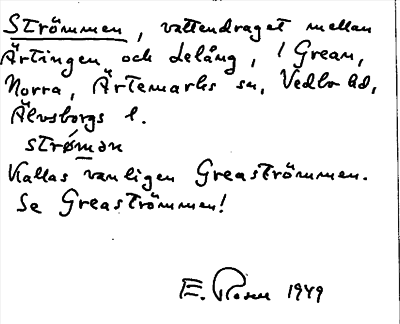 Strömmen, vattendraget mellan
Ärtingen och Lelång, i Grean,
Norra, Ärtemarks sn, Vedbo hd,
Älvsborgs l.
strø̀mən
Kallas vanligen Greaströmmen.
Se Greaströmmen!
E. Rosen 1949